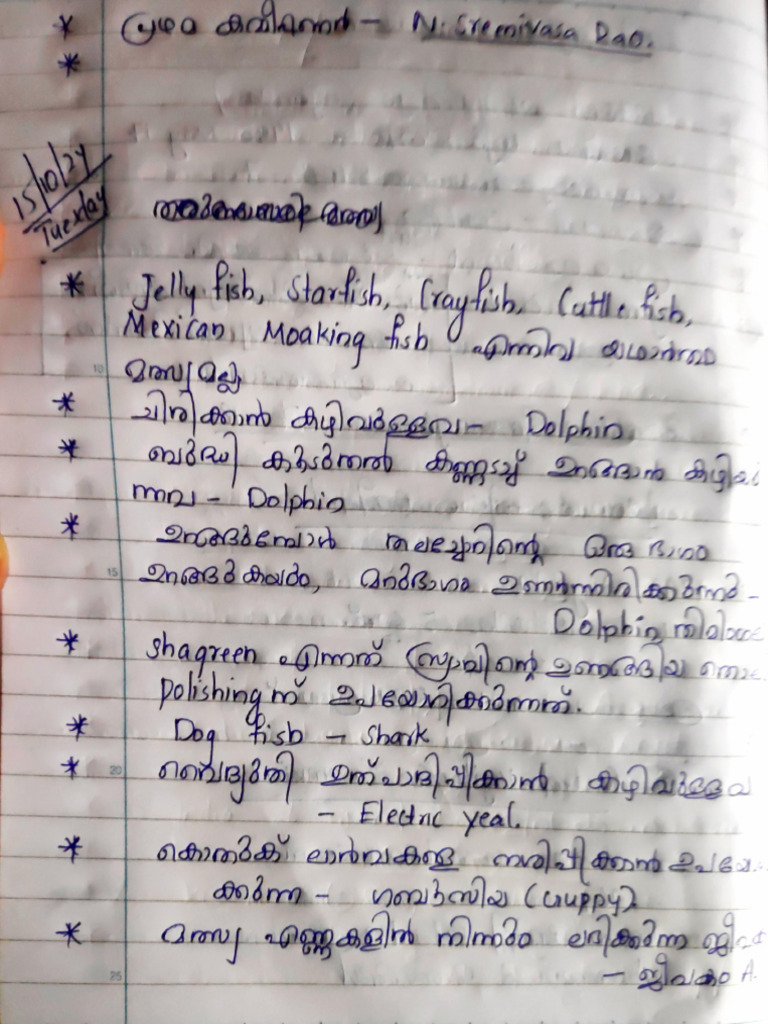 * പ്രഥമ കമ്മീഷണർ - N. Sreenivasa Rao.
*
15/10/24
Tuesday
* Jelly fish, Starfish, Crayfish, Cuttle fish,
Mexican, Moaking fish എന്നിവ യഥാർത്ഥ
മത്സ്യമല്ല
* ചിരിക്കാൻ കഴിവുള്ളവ - Dolphin
* ബുദ്ധി കൂടുതൽ കണ്ണടച്ച് ഉറങ്ങാൻ
ന്നവ - Dolphin
* ഉറങ്ങുമ്പോൾ തലച്ചോറിന്റെ ഒരു ഭാഗം
ഉറങ്ങുകയും, മറുഭാഗം ഉണർന്നിരിക്കുന്നു -
Dolphin,
* Shagreen എന്നത് സ്രാവിന്റെ ഉണങ്ങിയ
Polishing ന് ഉപയോഗിക്കുന്നത്.
* Dog fish - Shark
* വൈദ്യുതി ഉത്പാദിപ്പിക്കാൻ കഴിവുള്ളവ
- Electric yeal.
* കൊതുക് ലാർവകളെ നശിപ്പിക്കാൻ
ക്കുന്ന - ഗബൂസിയ (Guppy)
* മത്സ്യ എണ്ണകളിൽ നിന്നും ലഭിക്കുന്ന
- ജീവകം A.